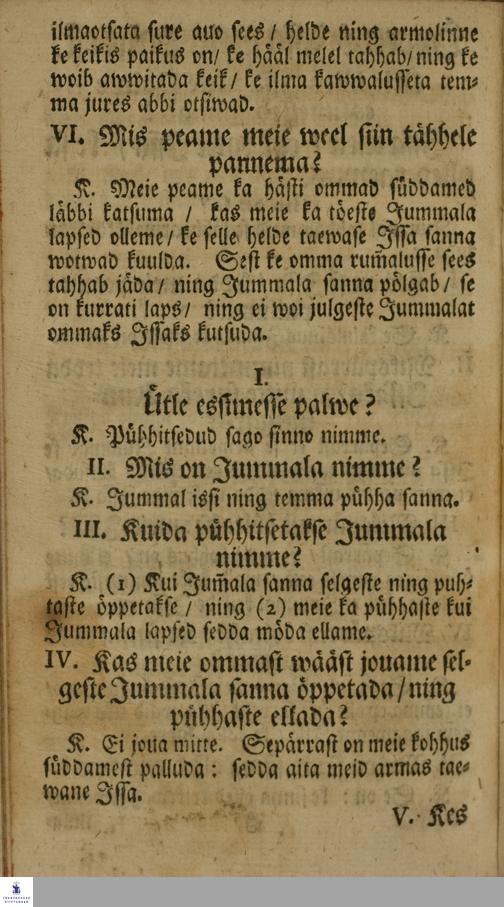 ilmaotsata sure auo sees / helde ning armolinne
ke keikis paikus on / ke hääl melel tahhab / ning ke
woib awwitada keik / ke ilma kawwalusseta tem⸗
ma jures abbi otsiwad.
VI. Mis peame meie weel siin tähhele
pannema?
K. Meie peame ka hästi ommad süddamed
läbbi katsuma / kas meie ka töeste Jummala
lapsed olleme / ke selle helde taewase Issa sanna
wotwad kuulda. Sest ke omma rum̄alusse sees
tahhab jäda / ning Jummala sanna pölgab / se
on kurrati laps / ning ei woi julgeste Jummalat
ommaks Issaks kutsuda.
I.
Ütle essimesse palwe?
K. Pühhitsedud sago sinno nimme.
II. Mis on Jummala nimme?
K. Jummal issi ning temma pühha sanna.
III. Kuida pühhitsetakse Jummala
nimme?
K. (1) Kui Jum̄ala sanna selgeste ning puh⸗
taste öppetakse / ning (2) meie ka pühhaste kui
Jummala lapsed sedda möda ellame.
IV. Kas meie ommast wääst jouame sel⸗
geste Jummala sanna öppetada / ning
pühhaste ellada?
K. Ei joua mitte. Sepärrast on meie kohhus
süddamest palluda : sedda aita meid armas tae⸗
wane Issa.
V. Kes
FRANCKESCHE
STIFTUNGEN